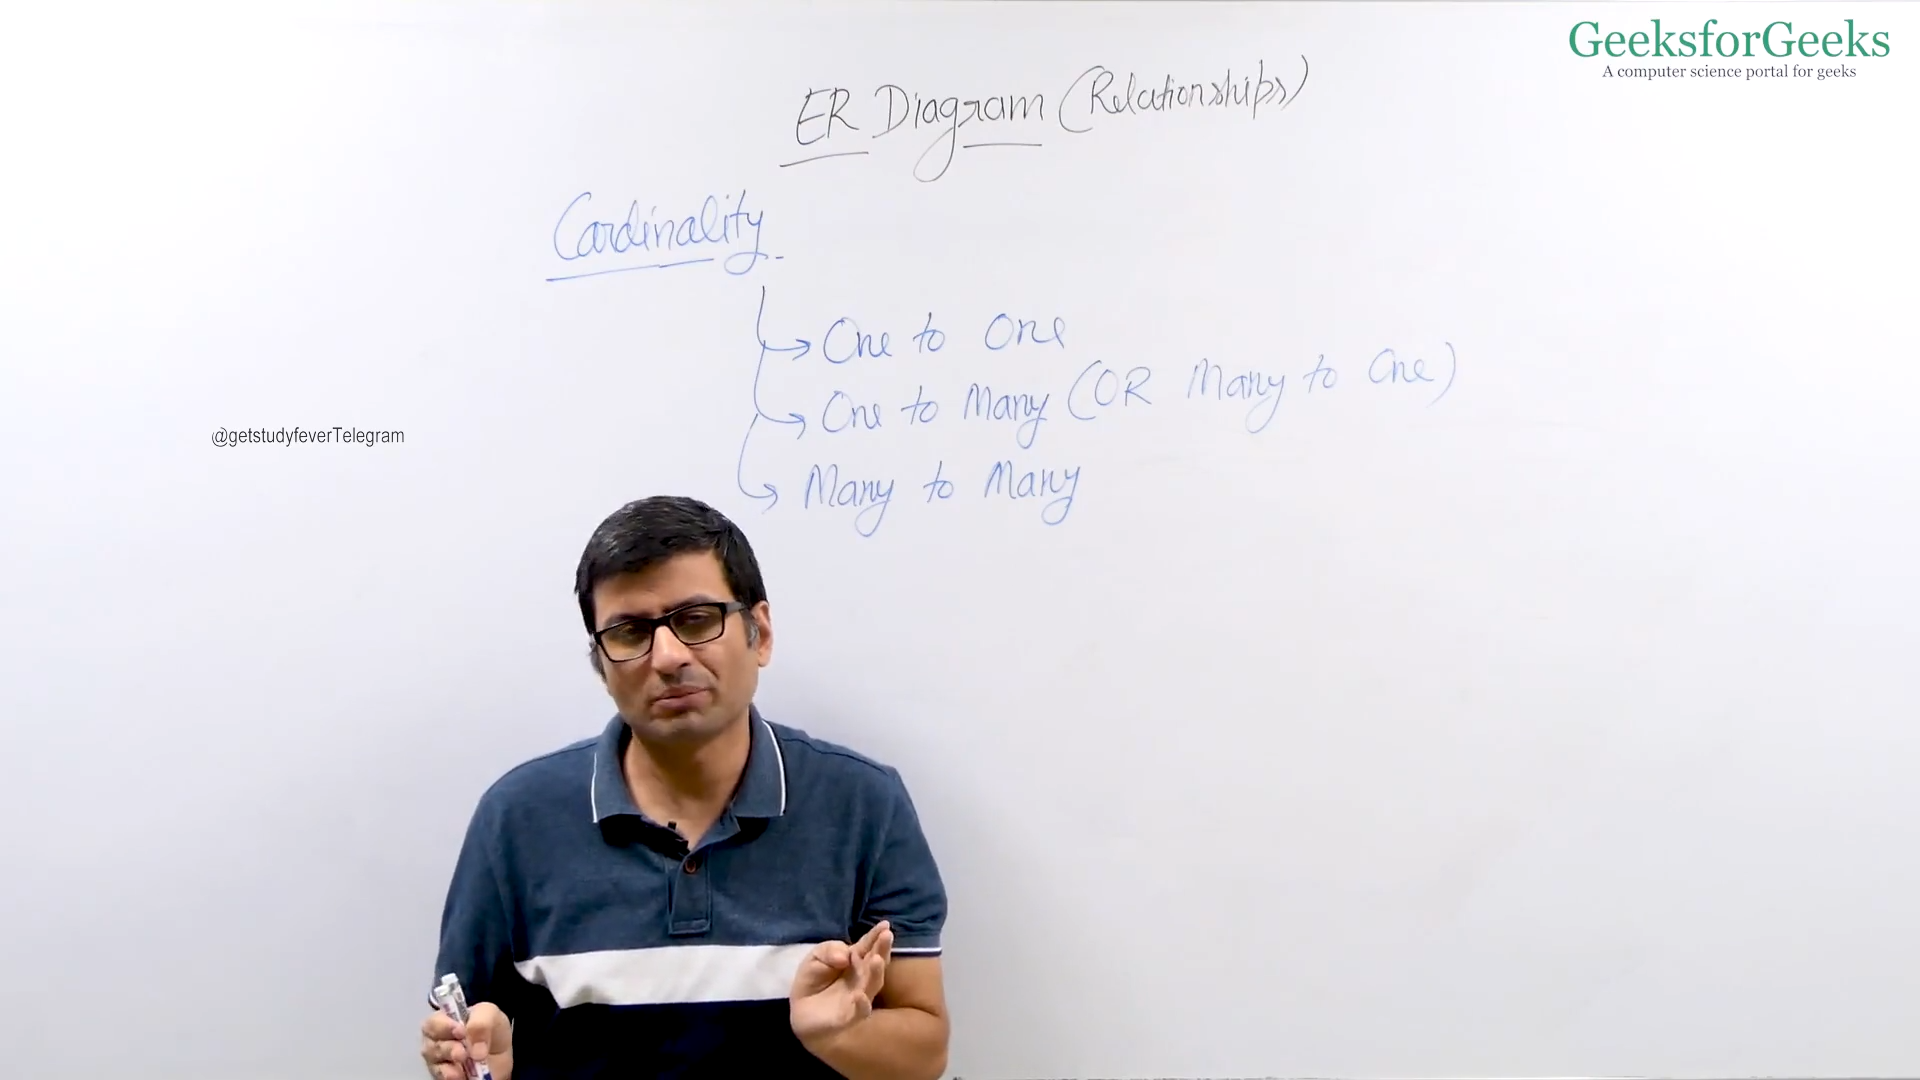 GeeksforGeeks
A computer science portal for geeks
ER Diagram (Relationships)
Cardinality
One to One
One to Many (OR Many to One)
Many to Many
@getstudyfeverTelegram